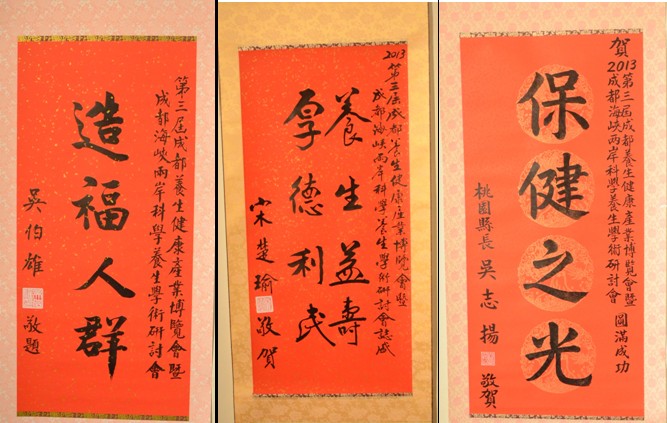 第三屆成都養生健康產業博覽會暨
成都海峽兩岸科學養生學術研討會
造福人群
吳伯雄
敬題
2013第三屆成都养生健康産業博覽會暨
成都海峽兩岸科學養生學術研討會誌盛
養生益壽
厚德利民
宋楚瑜
敬賀
賀
2013第三屆成都養生健康產業博覽會暨
成都海峽兩岸科學養生學術研討會 圓滿成功
保健之光
桃園縣長 吳志揚
敬賀